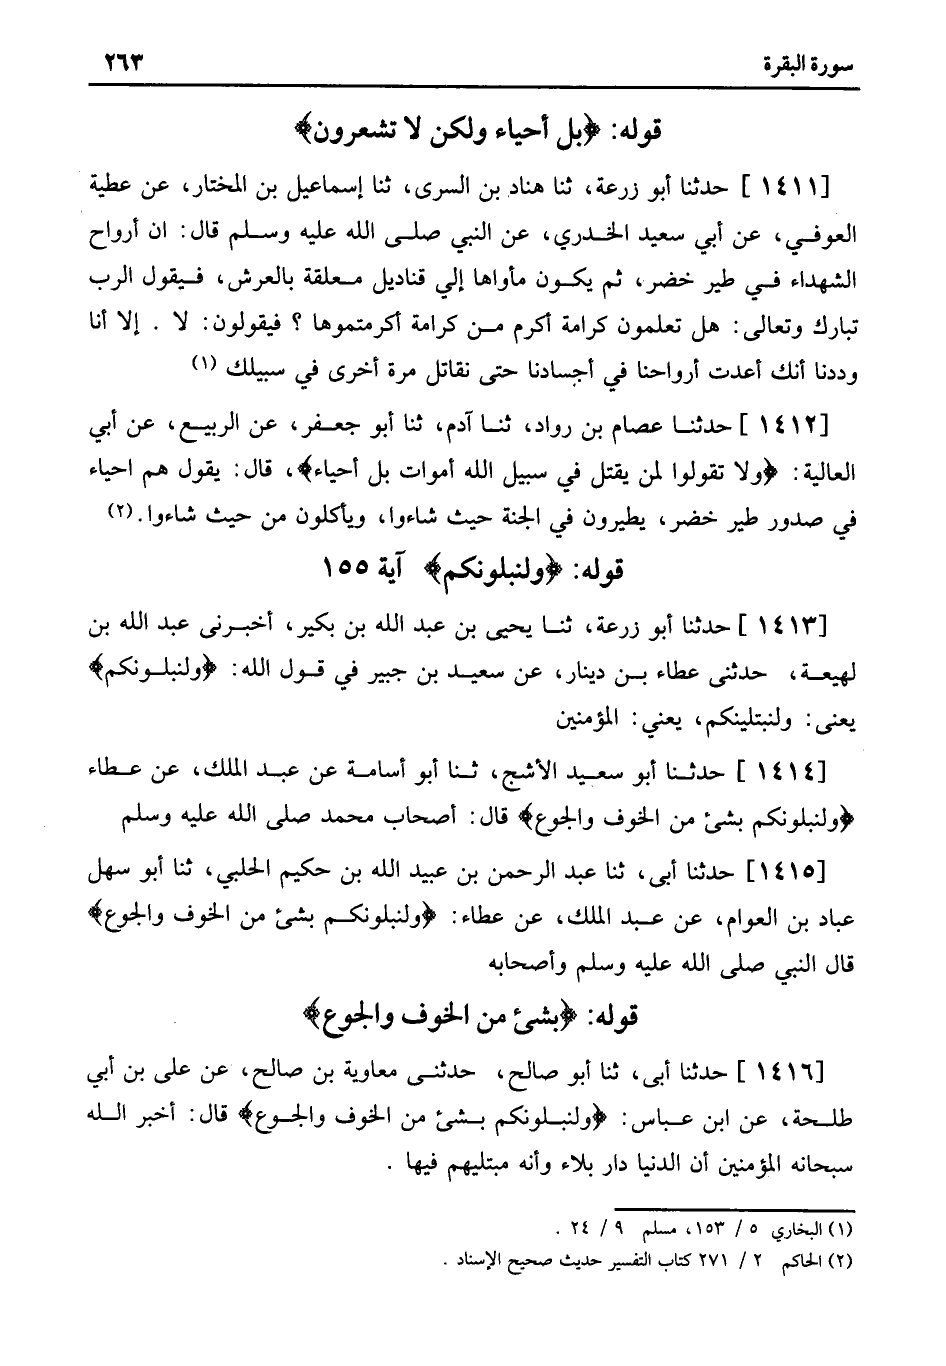 سورة البقرة ٢٦٣
قوله: ﴿بل أحياء ولكن لا تشعرون﴾
[١٤١١ ] حدثنا أبو زرعة، ثنا هناد بن السرى، ثنا إسماعيل بن المختار، عن عطية
العوفي، عن أبي سعيد الخدري، عن النبي صلى الله عليه وسلم قال: ان أرواح
الشهداء في طير خضر، ثم يكون مأواها إلي قناديل معلقة بالعرش، فيقول الرب
تبارك وتعالى: هل تعلمون كرامة أكرم من كرامة أكرمتموها ؟ فيقولون: لا . إلا أنا
وددنا أنك أعدت أرواحنا في أجسادنا حتى نقاتل مرة أخرى في سبيلك (١)
[١٤١٢ ] حدثنا عصام بن رواد، ثنا آدم، ثنا أبو جعفر، عن الربيع، عن أبي
العالية: ﴿ولا تقولوا لمن يقتل في سبيل الله أموات بل أحياء﴾، قال: يقول هم احياء
في صدور طير خضر، يطيرون في الجنة حيث شاءوا، ويأكلون من حيث شاءوا.(٢)
قوله: ﴿ولنبلونكم﴾ آية ١٥٥
[١٤١٣ ] حدثنا أبو زرعة، ثنا يحيى بن عبد الله بن بكير، أخبرنى عبد الله بن
لهيعة، حدثنى عطاء بن دينار، عن سعيد بن جبير في قول الله: ﴿ولنبلونكم﴾
يعنى: ولنبتلينكم، يعني: المؤمنين
[١٤١٤ ] حدثنا أبو سعيد الأشج، ثنا أبو أسامة عن عبد الملك، عن عطاء
﴿ولنبلونكم بشئ من الخوف والجوع﴾ قال: أصحاب محمد صلى الله عليه وسلم
[١٤١٥] حدثنا أبى، ثنا عبد الرحمن بن عبيد الله بن حكيم الحلبي، ثنا أبو سهل
عباد بن العوام، عن عبد الملك، عن عطاء: ﴿ولنبلونكم بشئ من الخوف والجوع﴾
قال النبي صلى الله عليه وسلم وأصحابه
قوله: ﴿بشئ من الخوف والجوع﴾
[١٤١٦ ] حدثنا أبى، ثنا أبو صالح، حدثنى معاوية بن صالح، عن على بن أبي
طلحة، عن ابن عباس: ﴿ولنبلونكم بشئ من الخوف والجوع﴾ قال: أخبر الله
سبحانه المؤمنين أن الدنيا دار بلاء وأنه مبتليهم فيها .
(١) البخاري ٥ / ١٥٣، مسلم ٩ / ٢٤ .
(٢) الحاكم ٢ / ٢٧١ كتاب التفسير حديث صحيح الإسناد .